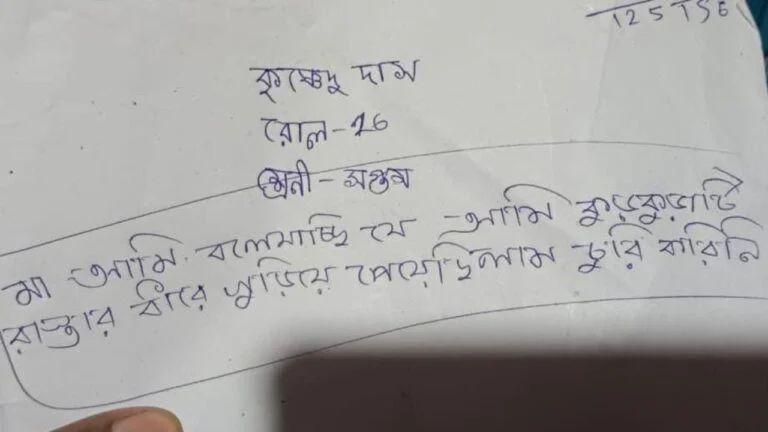 125156
কৃষ্ণেন্দু দাস
রোল-16
শ্রেনী - সপ্তম
মা আমি বলেযাচ্ছি যে আমি কুড়কুড়াটি
রাস্তার ধারে খুড়িয়ে পেয়েছিলাম চুরি করিনি